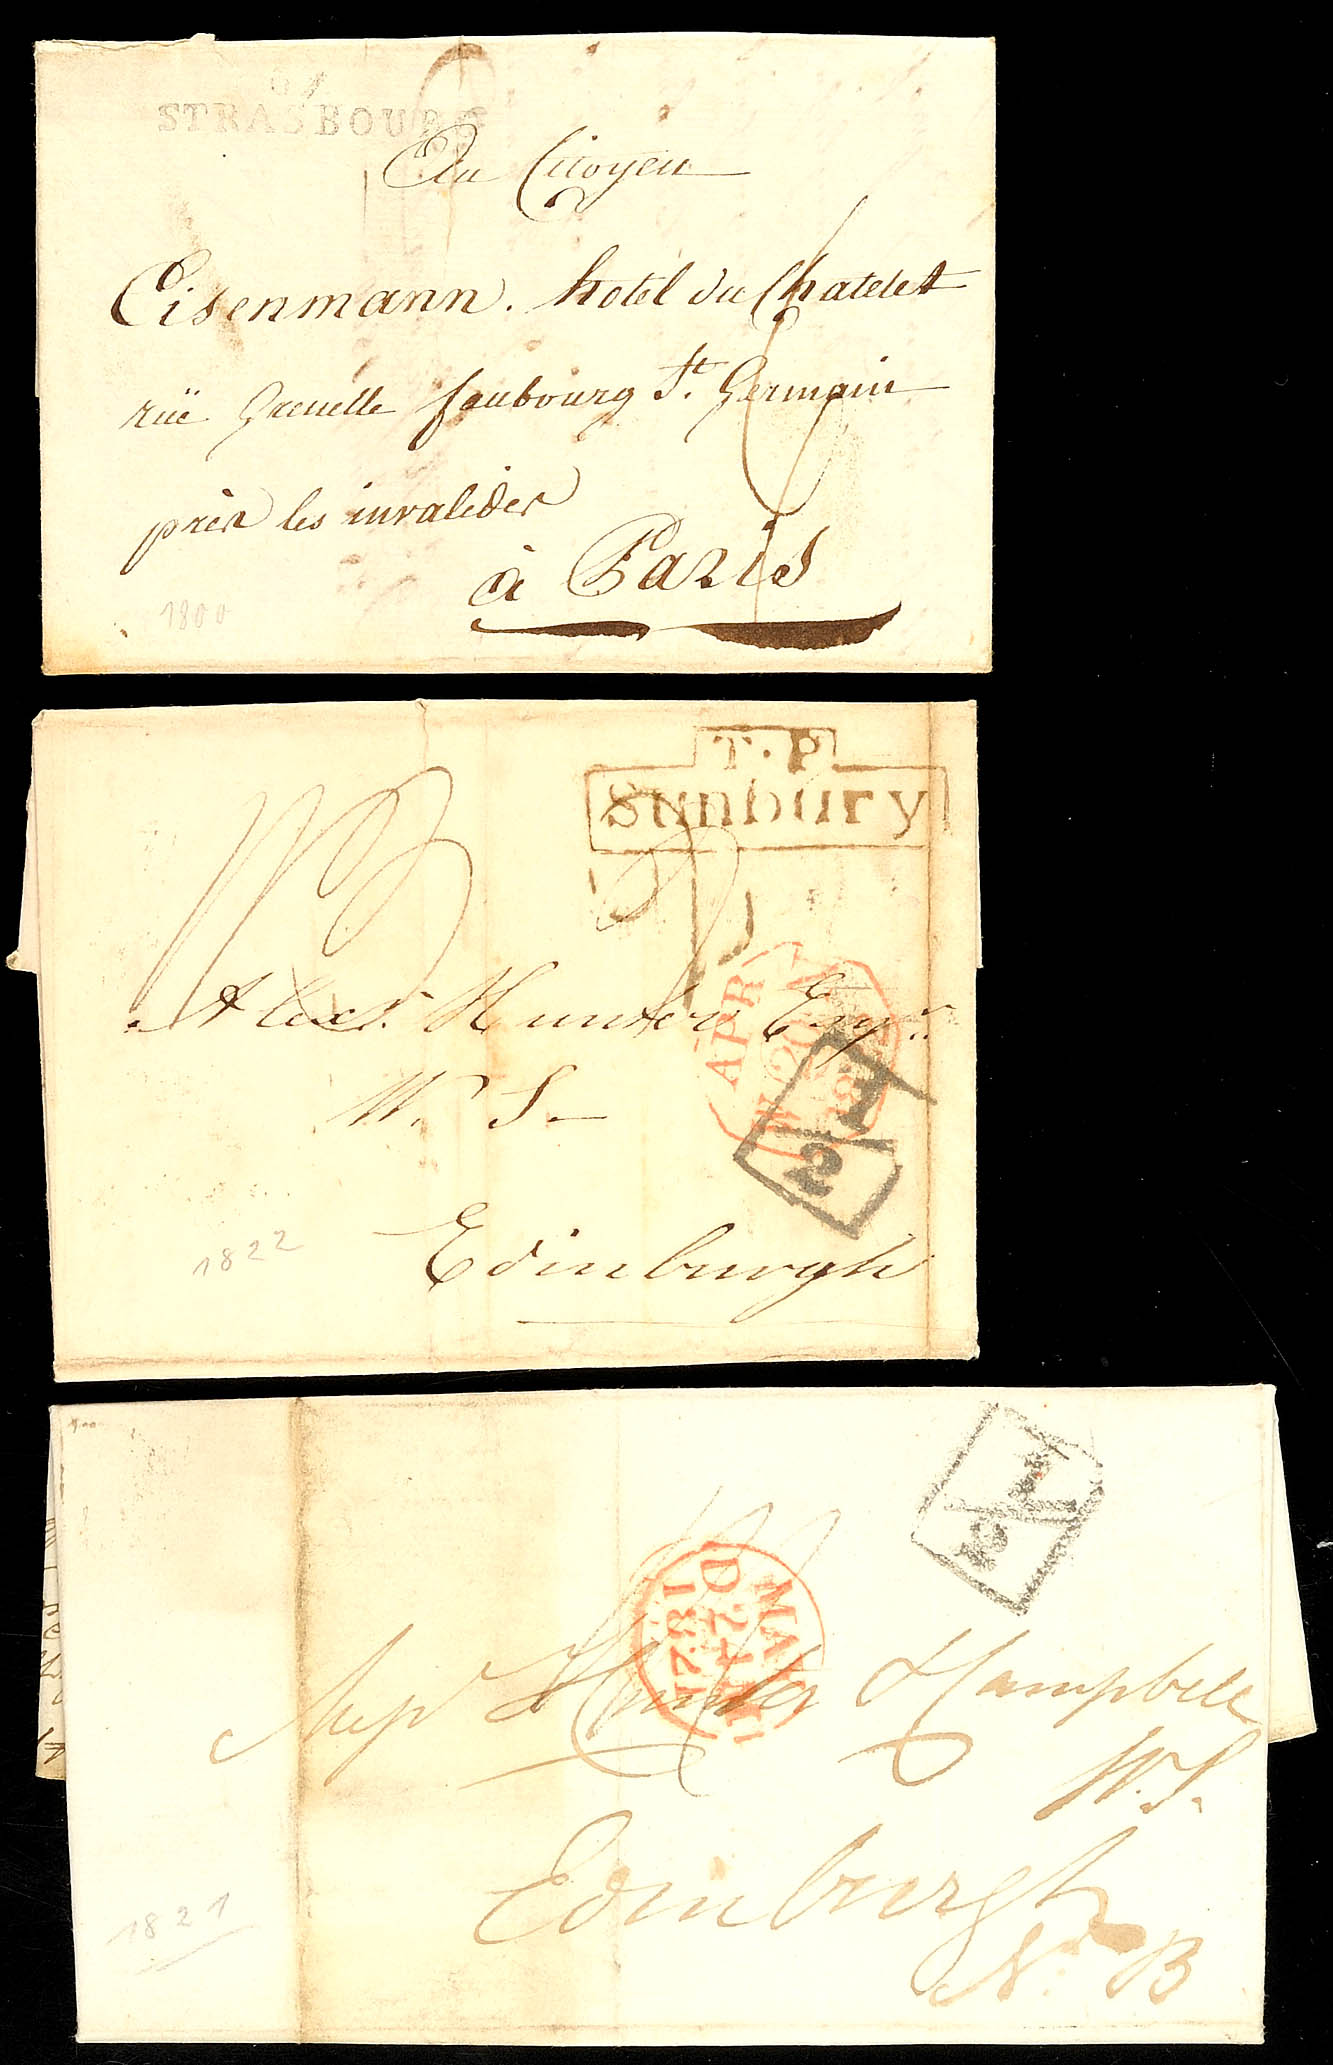 67
STRASBOURG
Au Citoyen
Eisenmann. hotel du Chatelet
ruë Grenelle faubourg St. Germain
près les invalides
à Paris
1800
T.P
Sunbury
Alexr. Hunter Esqr.
W. S.
Edinburgh
APR
20
1
2
1822
1
2
MAY
D 24
1821
Hunter Campbell
W. S.
Edinburgh
N. B
1821